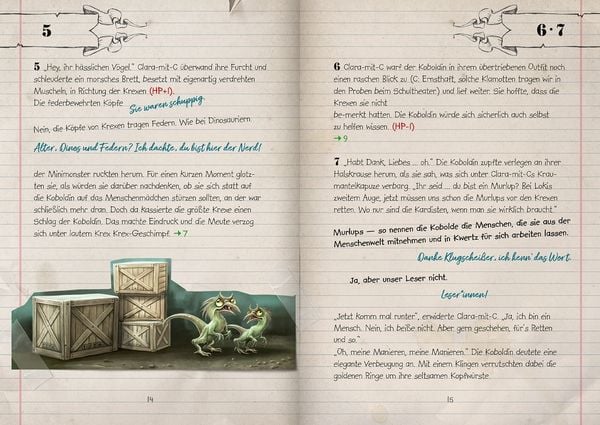 5
5 „Hey, ihr hässlichen Vögel.“ Clara-mit-C überwand ihre Furcht und
schleuderte ein morsches Brett, besetzt mit eigenartig verdrehten
Muscheln, in Richtung der Krexen (HP+1).
Die federbewehrten Köpfe
Sie waren schuppig.
Nein, die Köpfe von Krexen tragen Federn. Wie bei Dinosauriern.
Alter, Dinos und Federn? Ich dachte, du bist hier der Nerd!
der Minimonster ruckten herum. Für einen kurzen Moment glotz-
ten sie, als würden sie darüber nachdenken, ob sie sich statt auf
die Koboldin auf das Menschenmädchen stürzen sollten, an der war
schließlich mehr dran. Doch da kassierte die größte Krexe einen
Schlag der Koboldin. Das machte Eindruck und die Meute verzog
sich unter lautem Krex Krex-Geschimpf. ➔7
14
6·7
6 Clara-mit-C warf der Koboldin in ihrem übertriebenen Outfit noch
einen raschen Blick zu (C: Ernsthaft, solche Klamotten tragen wir in
den Proben beim Schultheater) und lief weiter. Sie hoffte, dass die
Krexen sie nicht
be-merkt hatten. Die Koboldin würde sich sicherlich auch selbst
zu helfen wissen. (HP-1)
➔9
7 „Habt Dank, Liebes ... oh.“ Die Koboldin zupfte verlegen an ihrer
Halskrause herum, als sie sah, was sich unter Clara-mit-Cs Krau-
mantelkapuze verbarg. „Ihr seid ... du bist ein Murlup? Bei Lokis
zweitem Auge, jetzt müssen uns schon die Murlups vor den Krexen
retten. Wo nur sind die Kardisten, wenn man sie wirklich braucht.“
Murlups – so nennen die Kobolde die Menschen, die sie aus der
Menschenwelt mitnehmen und in Kwertz für sich arbeiten lassen.
Danke Klugscheißer, ich kenn' das Wort.
Ja, aber unser Leser nicht.
Leser*innen!
„Jetzt komm mal runter“, erwiderte Clara-mit-C. „Ja, ich bin ein
Mensch. Nein, ich beiße nicht. Aber gern geschehen, für's Retten
und so.“
„Oh, meine Manieren, meine Manieren.“ Die Koboldin deutete eine
elegante Verbeugung an. Mit einem Klingen verrutschten dabei die
goldenen Ringe um ihre seltsamen Kopfwürste.
15